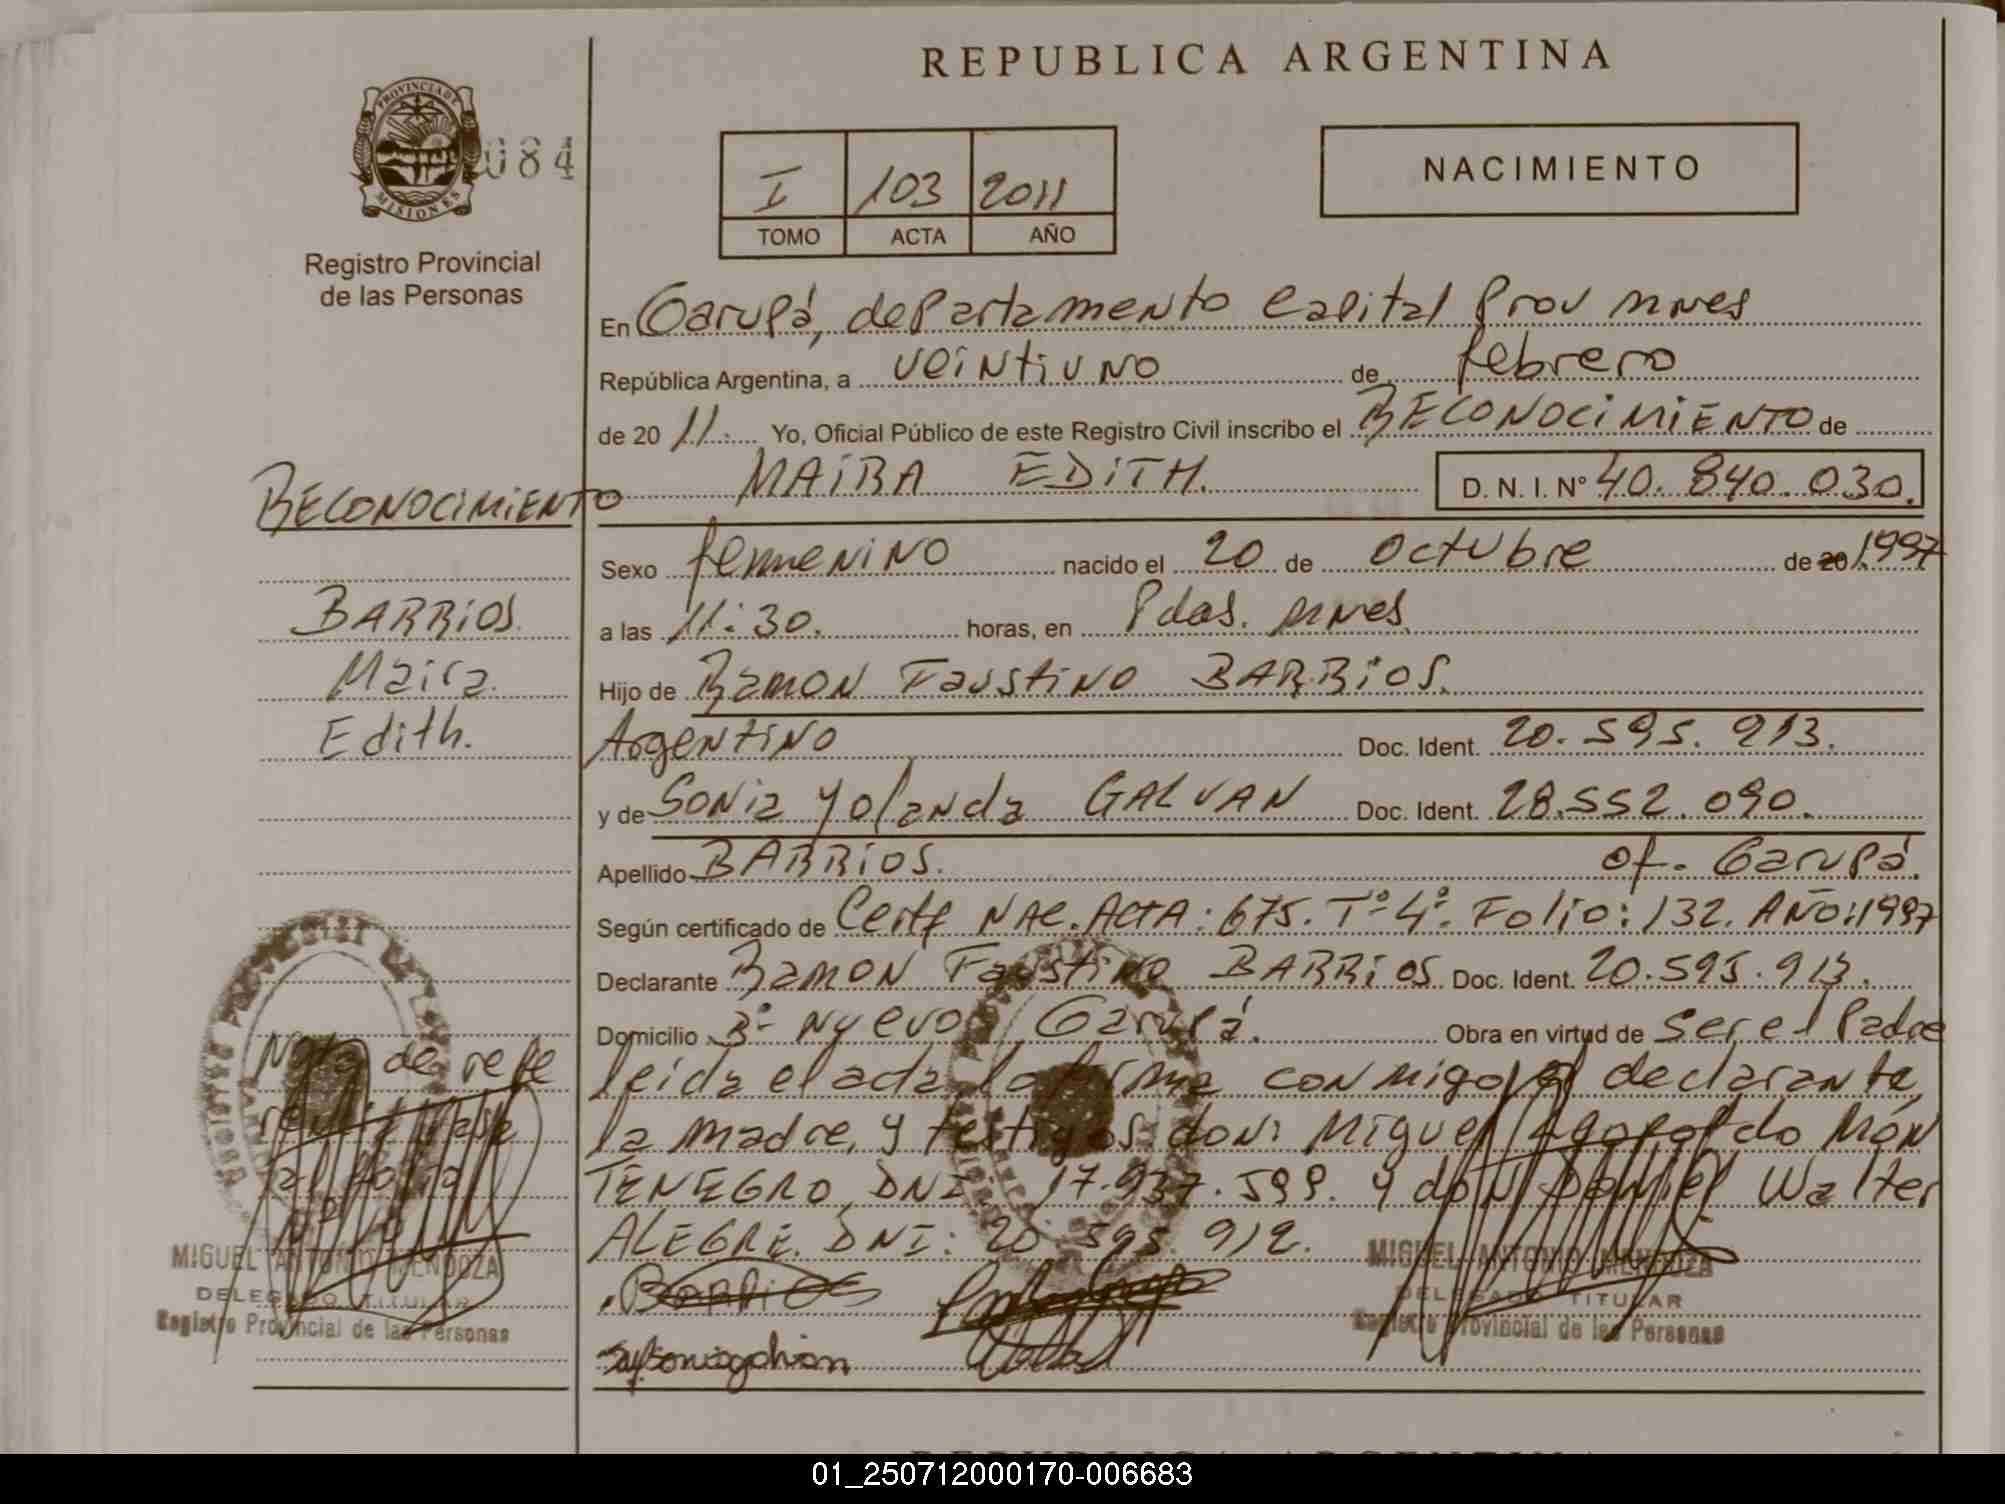 REPUBLICA ARGENTINA
PROVINCIA DE
MISIONES
084
Registro Provincial
de las Personas
I 103 2011
TOMO ACTA AÑO
NACIMIENTO
En Garupá, departamento Capital Prov mnes
República Argentina, a veintiuno de febrero
de 20 11. Yo, Oficial Público de este Registro Civil inscribo el RECONOCIMIENTO de
MAIRA EDITH. D. N. I. Nº 40. 840. 030.
RECONOCIMIENTO
BARRIOS.
Maira
Edith.
Sexo femenino nacido el 20 de octubre de 20 1997
a las 11:30. horas, en Pdas. mnes
Hijo de Ramon Faustino BARRIOS.
Argentino Doc. Ident. 20. 595. 913.
y de Sonia Yolanda GALVAN Doc. Ident. 28.552.090.
Apellido BARRIOS. of. Garupá.
Según certificado de Certf NAC. ACTA: 675. Tº 4º. Folio: 132. AÑO:1997
Declarante Ramon Faustino BARRIOS Doc. Ident. 20.595.913.
Domicilio Bº Nuevo Garupá. Obra en virtud de ser el Padre
leida el acta, la firma conmigo, el declarante,
la madre, y testigos: don: Miguel MON
TENEGRO, DNI 17.937.599. y don Daniel Walter
ALEGRE. DNI: 20 595. 912.
Nota de refe
MIGUEL ANTONIO MENDOZA
DELEGADO TITULAR
Registro Provincial de las Personas
Barrios
MIGUEL ANTONIO MENDOZA
DELEGADO TITULAR
Registro Provincial de las Personas
REPUBLICA ARGENTINA
01_250712000170-006683